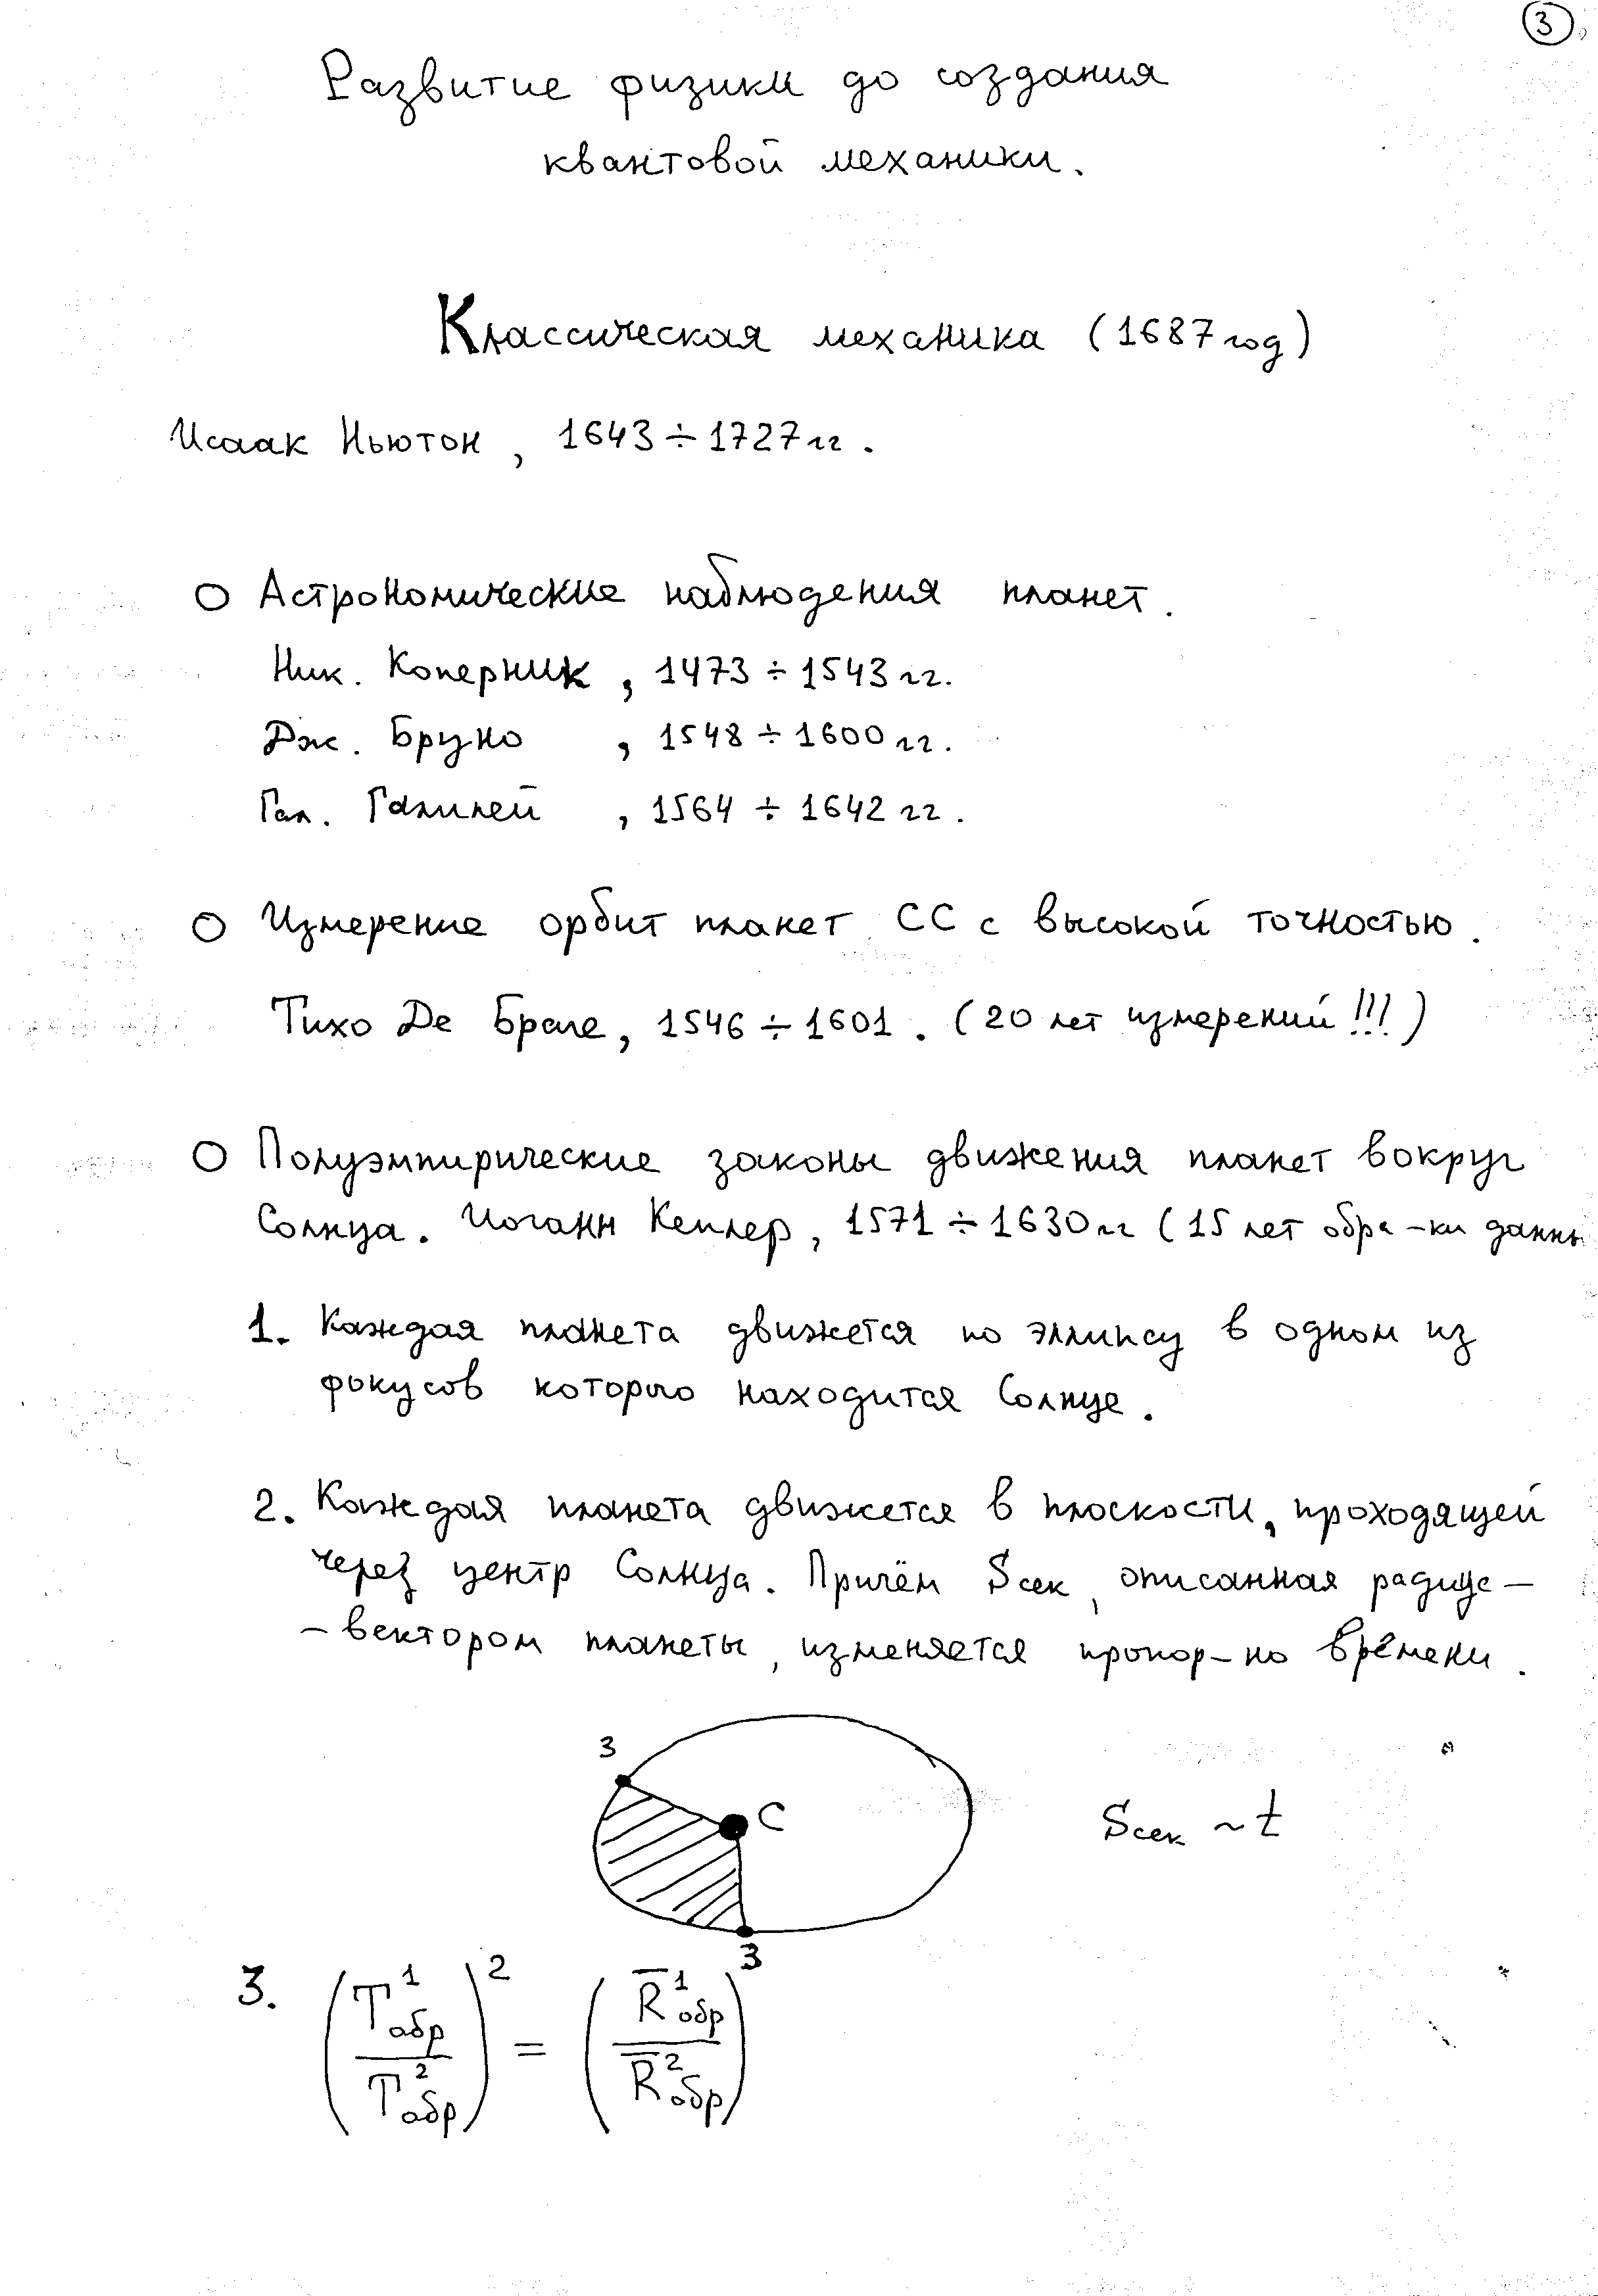 3
Развитие физики до создания
квантовой механики.
Классическая механика (1687 год)
Исаак Ньютон, 1643 ÷ 1727 гг.
Астрономические наблюдения планет.
Ник. Коперник, 1473 ÷ 1543 гг.
Дж. Бруно, 1548 ÷ 1600 гг.
Гал. Галилей, 1564 ÷ 1642 гг.
Измерение орбит планет СС с высокой точностью.
Тихо Де Браге, 1546 ÷ 1601. (20 лет измерений!!!)
Полуэмпирические законы движения планет вокруг
Солнца. Иоганн Кеплер, 1571 ÷ 1630 гг (15 лет обра-ки данны
1. Каждая планета движется по эллипсу в одном из
фокусов которого находится Солнце.
2. Каждая планета движется в плоскости, проходящей
через центр Солнца. Причём Sсек, описанная радиус-
-вектором планеты, изменяется пропор-но времени.
З
С
Sсек ~ t
З
3. (T¹обр / T²обр)² = (R̅¹обр / R̅²обр)³